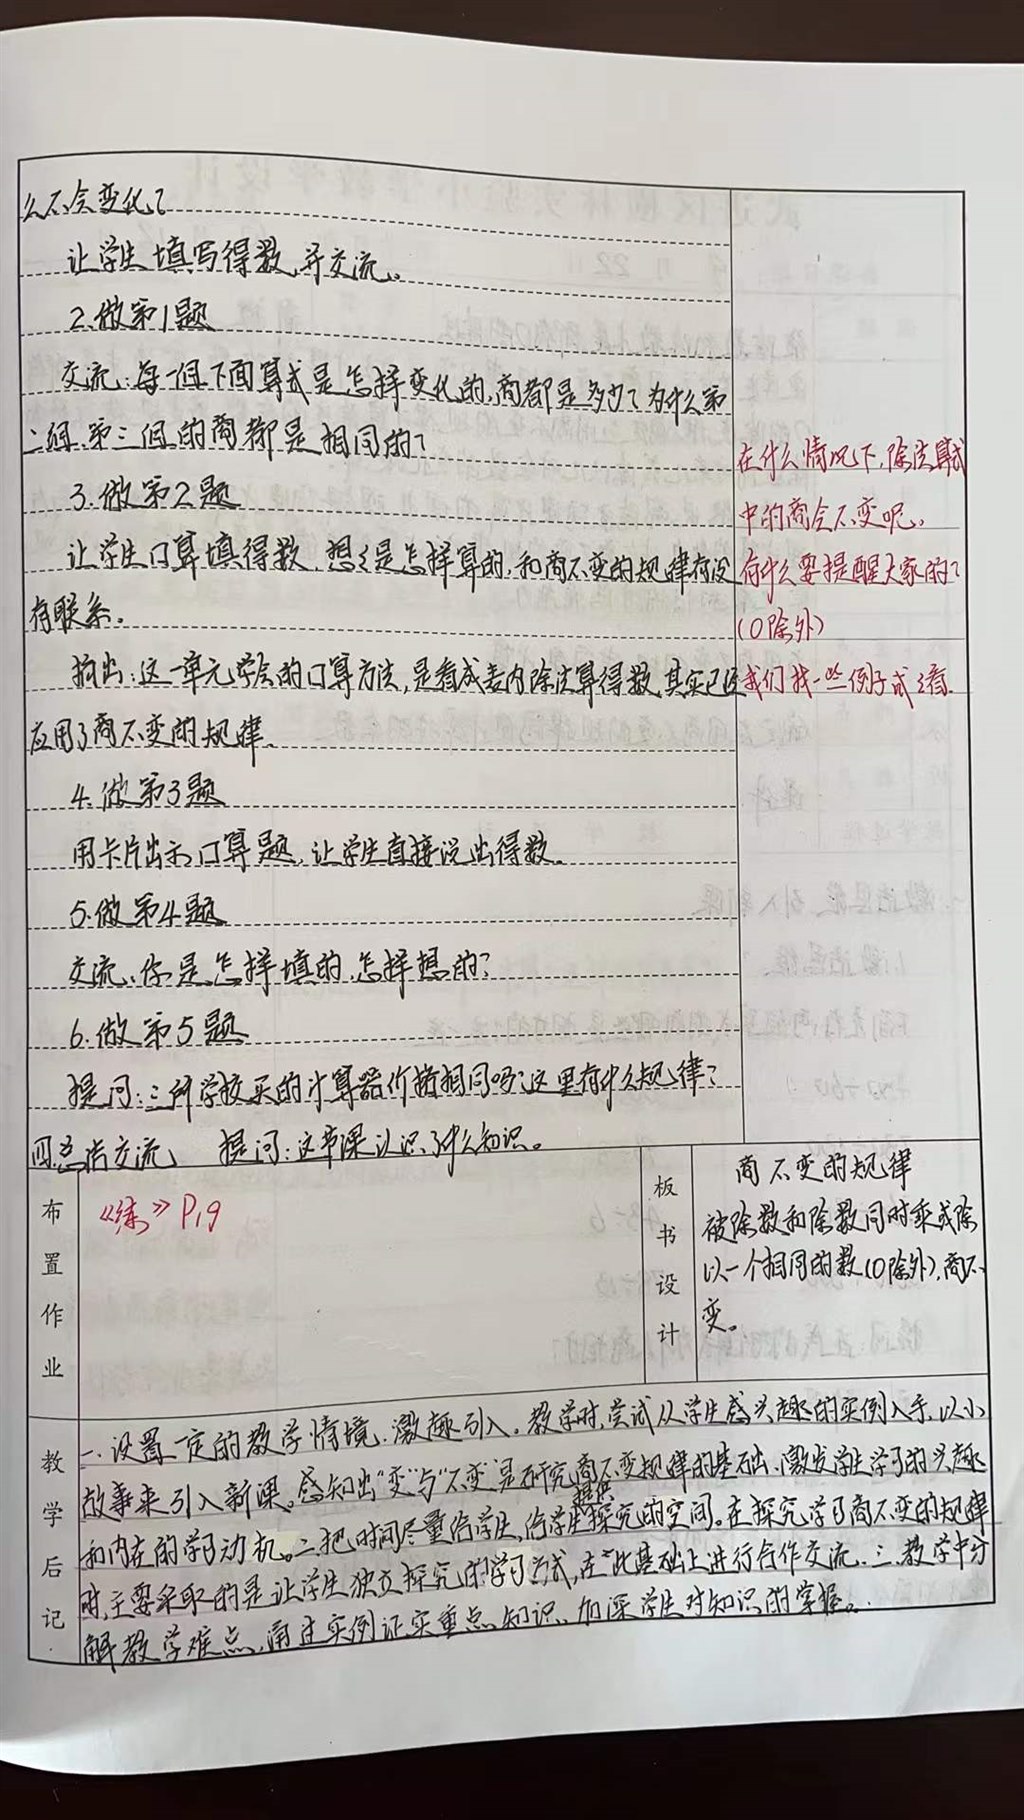 么不会变化？
让学生填写得数，并交流。
2.做第1题
交流：每一组下面算式是怎样变化的，商都是多少？为什么第
二组、第三组的商都是相同的？
3.做第2题
让学生口算填得数，想想是怎样算的，和商不变的规律有没
有联系。
指出：这一单元学会的口算方法，是看成表内除法算得数，其实已经
应用了商不变的规律。
4.做第3题
用卡片出示口算题，让学生直接说出得数。
5.做第4题
交流：你是怎样填的，怎样想的？
6.做第5题
提问：三所学校买的计算器价格相同吗？这里有什么规律？
四.总结交流 提问：这节课认识了什么知识。
在什么情况下，除法算式
中的商会不变呢。
有什么要提醒大家的？
（0除外）
我们找一些例子试试看.
布置作业
《练》P19
板书设计
商不变的规律
被除数和除数同时乘或除
以一个相同的数（0除外），商不
变。
教学后记
一、设置一定的教学情境，激趣引入。教学时，尝试从学生感兴趣的实例入手，以小
故事来引入新课。感知出“变”与“不变”是研究商不变规律的基础，激发学生学习的兴趣
和内在的学习动机。二.把时间尽量给学生，给学生提供探究的空间。在探究学习商不变的规律
时，主要采取的是让学生独立探究的学习方式，在此基础上进行合作交流.三.教学中分
解教学难点，通过实例证实重点知识，加深学生对知识的掌握。